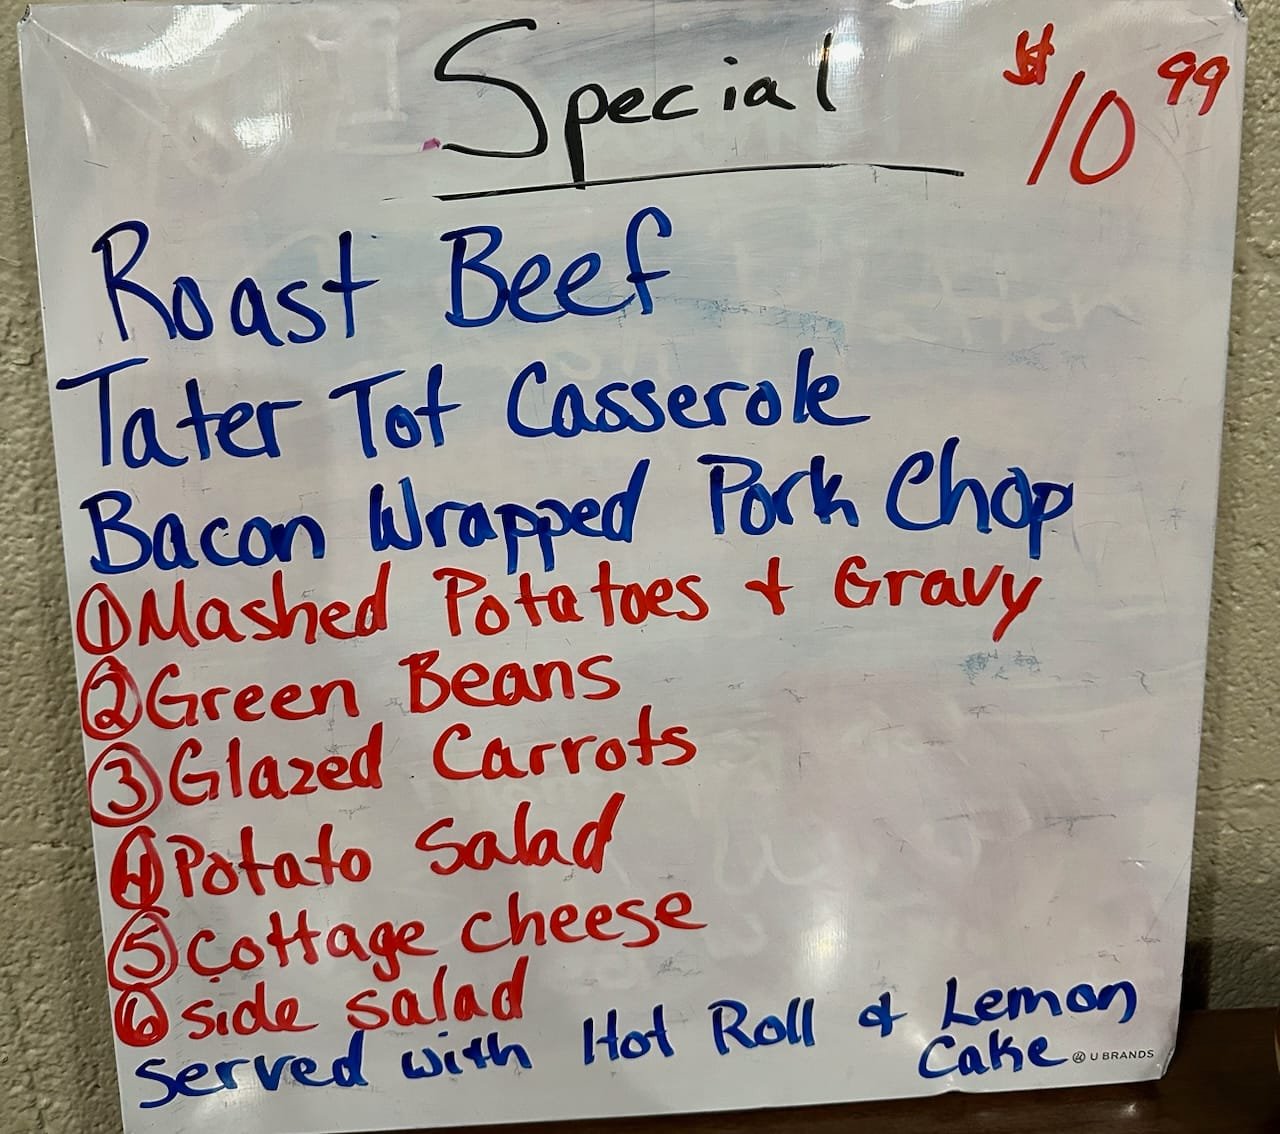 Special $10.99
Roast Beef
Tater Tot Casserole
Bacon Wrapped Pork Chop
① Mashed Potatoes & Gravy
② Green Beans
③ Glazed Carrots
④ Potato Salad
⑤ Cottage cheese
⑥ side salad
served with Hot Roll & Lemon
Cake
U BRANDS